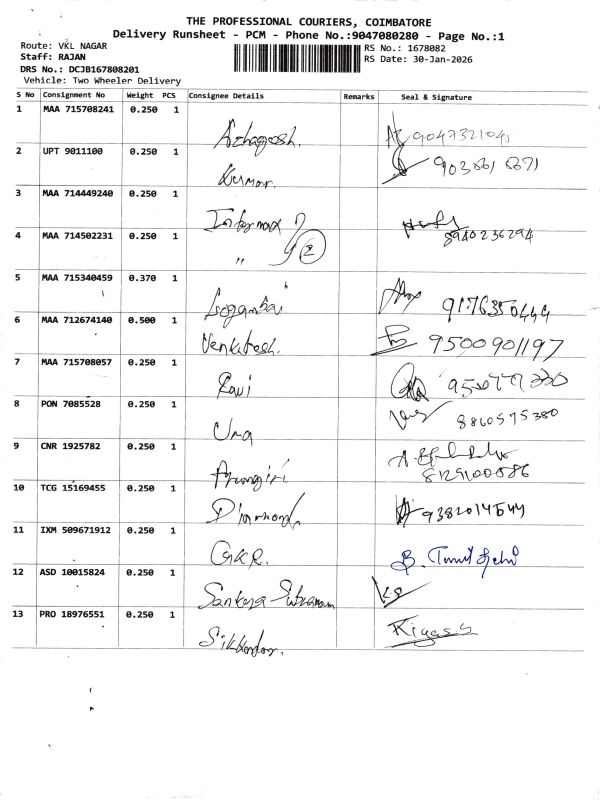 THE PROFESSIONAL COURIERS, COIMBATORE
Delivery Runsheet - PCM - Phone No.:9047080280 - Page No.:1
Route: VKL NAGAR
Staff: RAJAN
DRS No.: DCJB167808201
Vehicle: Two Wheeler Delivery
RS No.: 1678082
RS Date: 30-Jan-2026
S No Consignment No Weight PCS Consignee Details Remarks Seal & Signature
1 MAA 715708241 0.250 1
Azhagesh.
2 UPT 9011100 0.250 1
Kumar.
3 MAA 714449240 0.250 1
Intermax
8940236294
4 MAA 714502231 0.250 1
" 2
5 MAA 715340459 0.370 1
9176350444
6 MAA 712674140 0.500 1
Venkatesh. 9500901197
7 MAA 715708057 0.250 1
Ravi
8 PON 7085528 0.250 1
Uma 8860575380
9 CNR 1925782 0.250 1
Arungiri 8129100586
10 TCG 15169455 0.250 1
Diamond 9382014544
11 IXM 509671912 0.250 1
GKR.
12 ASD 10015824 0.250 1
Sankara Subramani KS
13 PRO 18976551 0.250 1
Sikkandar. Riyas.S